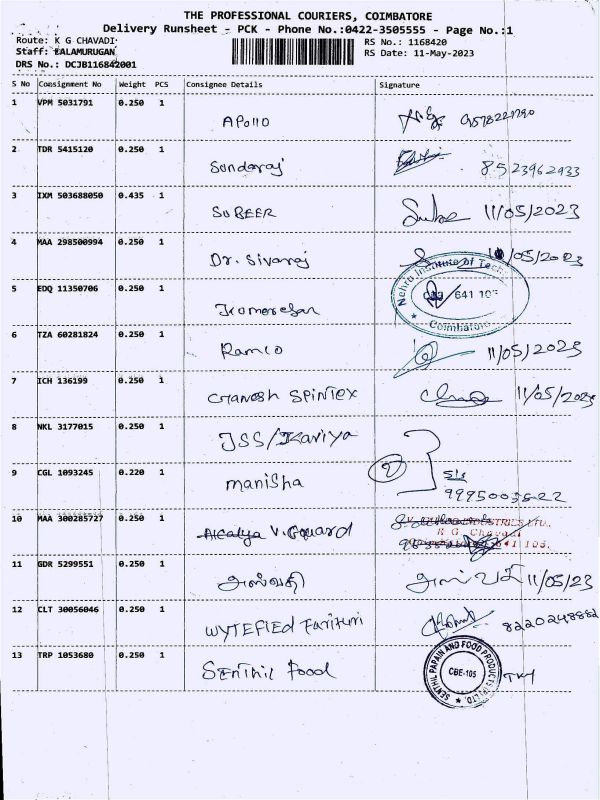 THE PROFESSIONAL COURIERS, COIMBATORE
Delivery Runsheet - PCK - Phone No.:0422-3505555 - Page No.:1
Route: K G CHAVADI
RS No.: 1168420
Staff: BALAMURUGAN
RS Date: 11-May-2023
DRS No.: DCJB116842001
S No Consignment No Weight PCS Consignee Details Signature
1 VPM 5031791 0.250 1 Apollo
2 TDR 5415120 0.250 1 Sundaraj 8523962933
3 IXM 503688050 0.435 1 SUBEER 11/05/2023
4 MAA 298500994 0.250 1 Dr. Sivaraj /05/2023
Nehru Institute of Tech
5 EDQ 11350706 0.250 1 Kumaresan
641 105
Coimbatore
6 TZA 60281824 0.250 1 Ramco 11/05/2023
7 ICH 136199 0.250 1 GANESH SPINTEX 11/05/2023
8 NKL 3177015 0.250 1 JSS/Kaviya
9 CGL 1093245 0.220 1 manisha 2
10 MAA 300285727 0.250 1 V. Gouard
INDUSTRIES LTD.,
K G. Chavadi
641 105.
11 GDR 5299551 0.250 1 அஸ்வதி 11/05/23
12 CLT 30056046 0.250 1 WYTEFIEd Farituri 8220248882
13 TRP 1053680 0.250 1 SENTHIL Food
SENTHIL PAPAIN AND FOOD PRODUCTS (P) LTD.
CBE-105